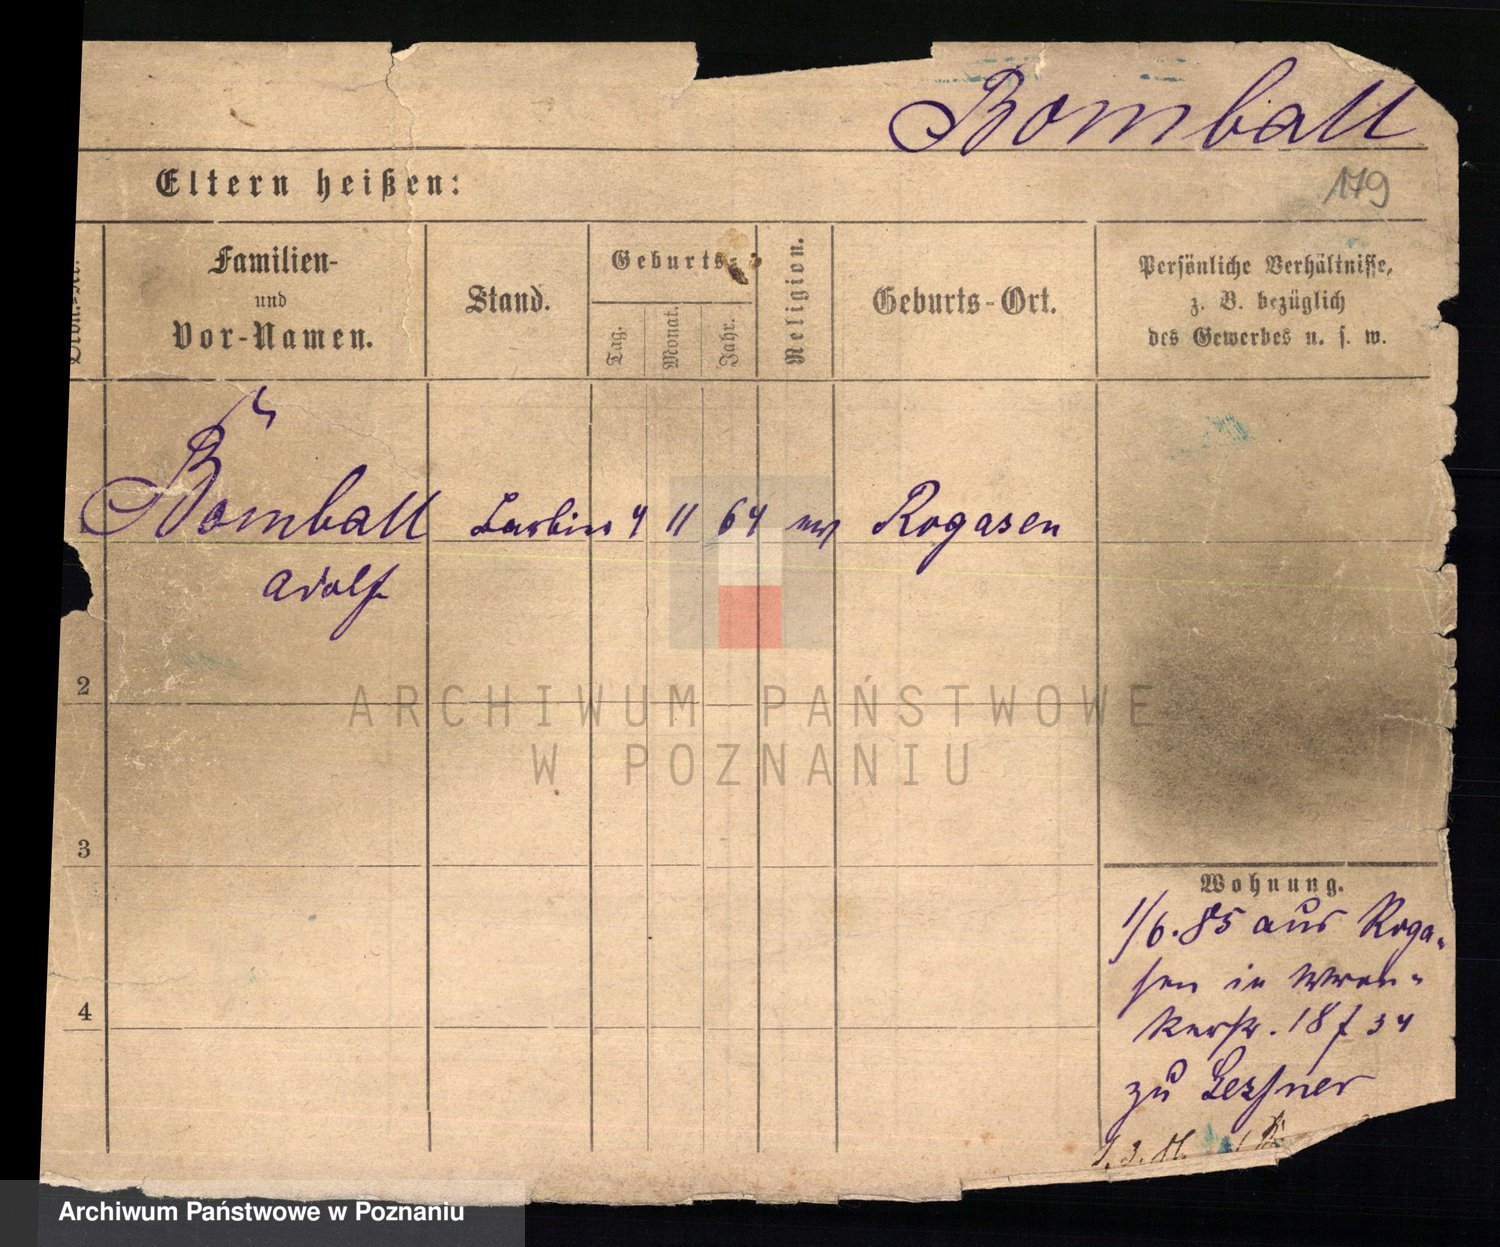 Bomball
Eltern heißen:
179
Familien-
und
Vor-Namen.
Stand.
Geburts-
Tag.
Monat.
Jahr.
Religion.
Geburts-Ort.
Persönliche Verhältnisse,
z. B. bezüglich
des Gewerbes u. s. w.
Bomball 4 11 64 Rogasen
Adolf
2
3
4
Wohnung.
1/6.85 aus Roga-
sen in Wron-
kerstr. 18
zu
ARCHIWUM PAŃSTWOWE
W POZNANIU
Archiwum Państwowe w Poznaniu